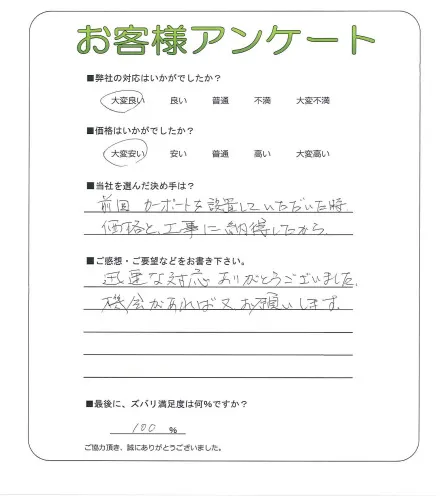 お客様アンケート
■弊社の対応はいかがでしたか？
大変良い 良い 普通 不満 大変不満
■価格はいかがでしたか？
大変安い 安い 普通 高い 大変高い
■当社を選んだ決め手は？
前回 カーポートを設置していただいた時
価格と、工事に納得したから。
■ご感想・ご要望などをお書き下さい。
迅速な対応ありがとうございました。
機会があれば又お願いします。
■最後に、ズバリ満足度は何％ですか？
100 %
ご協力頂き、誠にありがとうございました。